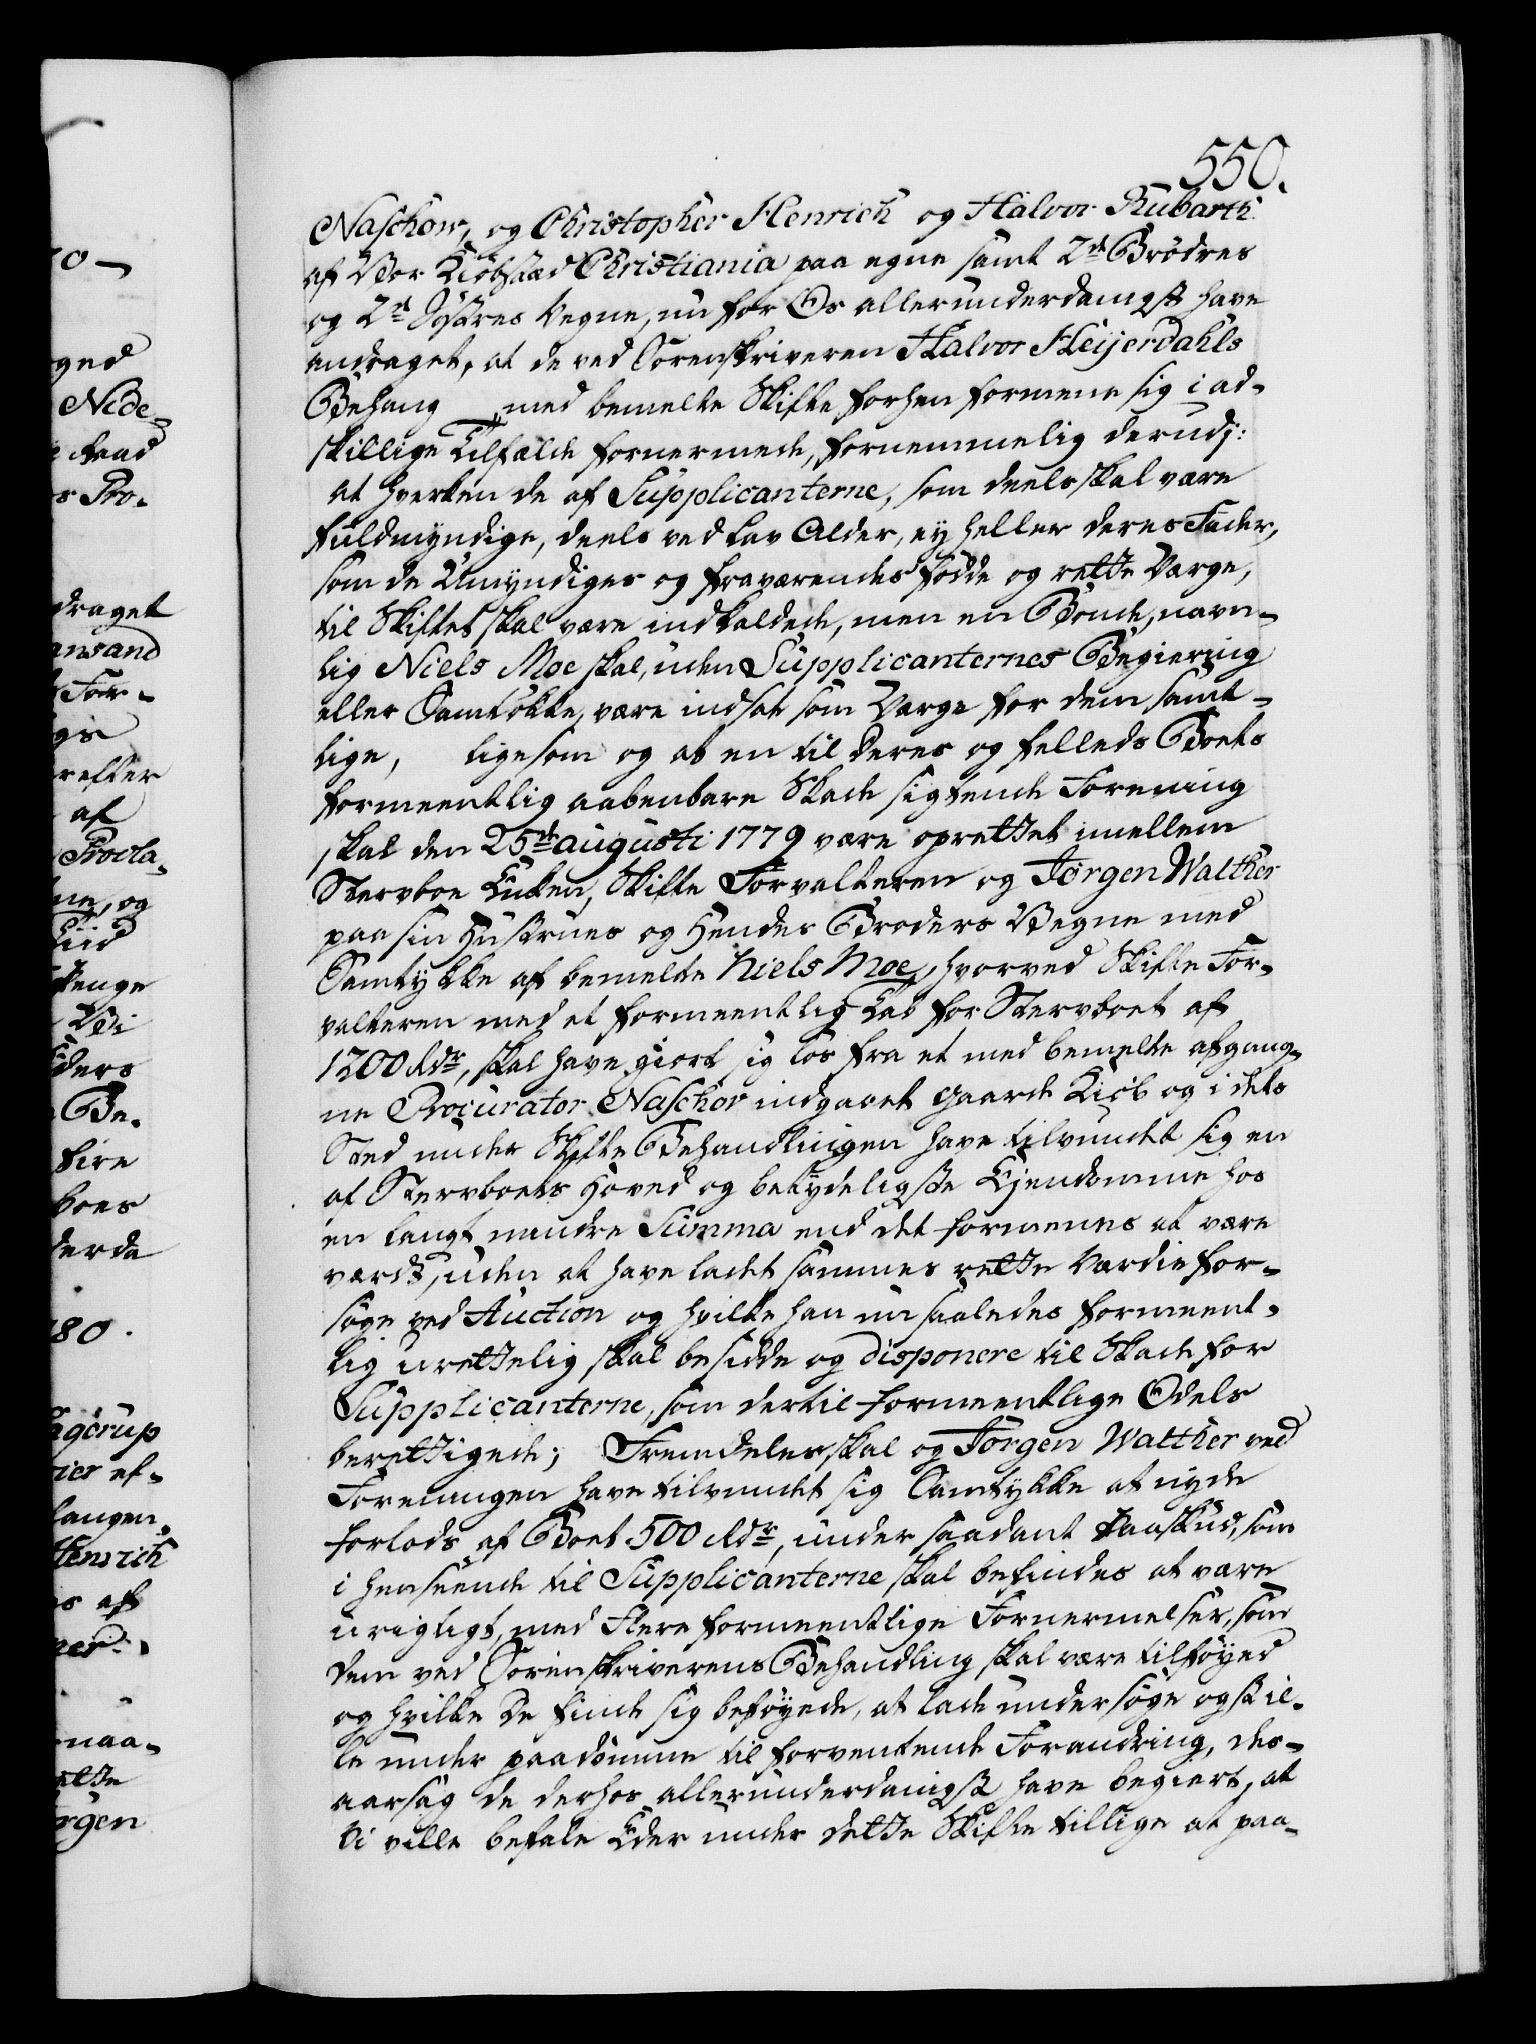 550.
Naschow, og Christopher Henrich og Halvor Rubarth
af Vor Kiöbstæd Christiania paa egne samt 2de Brødres
og 2de Søstres Vegne, nu for Os allerunderdanigst have
andraget, at de ved Sorenskriveren Halvor Heijerdahls
Behang med bemelte Skifte forhen formene sig i ad-
skillige Tilfælde fornermede, fornemmelig derudj:
at hverken de af Supplicanterne, som deels skal være
fuldmyndige, deels ved Lav Alder, ey heller deres Fader,
som de Umyndiges og fraværendes fødde og rette Værge,
til Skiftet skal være indkaldede, men en Bonde, navn-
lig Niels Moe skal, uden Supplicanternes Begiering
eller Samtykke, være indsat som Værge for dem samt-
lige, ligesom og at en til deres og felleds Boets
formeentlig aabenbare Skade sigtende Forening
skal den 25de augusti 1779 være oprettet imellem
Stervboe Enken, Skifte Forvalteren og Jørgen Walther
paa sin Hustrues og Hendes Broders Vegne med
Samtykke af bemelte Niels Moe, hvorved Skifte For-
valteren med et formeentlig Tab for Stervboet af
1200 Rdr, skal have giort sig løs fra et med bemelte afgang-
ne Procurator Naschov indgaaet Gaarde Kiøb og i dets
Sted under Skifte Behandlingen have tilvendt sig en
af Stervboets Hoved og betydeligste Ejendomme hos
en langt mindre Summa end det formenes at være
værdt, uden at have ladet sammes rette Værdie for-
søge ved Auction og hvilke han nu saaledes formeent-
lig urettelig skal besidde og disponere til Skade for
Supplicanterne, som dertil formeentlige Odels
berettigede; Fremdeles skal og Jørgen Walther ved
Foreningen have tilvendt sig Samtykke at nyde
forlods af Boet 500 Rdr, under saadant Paaskud, som
i henseende til Supplicanterne skal befindes at være
urigtigt, med flere formeentlige Fornermelser, som
dem ved Sorenskriverens Behandling skal være tilføyed
og hvilke de finde sig beføyede, at lade undersøge og stil-
le under paadømme til forventende Forandring, des-
aarsag de derhos allerunderdanigst have begiert, at
Vi ville befale Eder under dette Skifte tillige at paa-